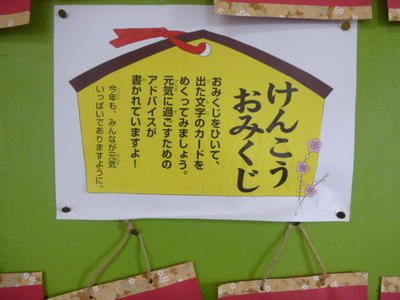 けんこう
おみくじ
おみくじをひいて、
出た文字のカードを
めくってみましょう。
元気に過ごすための
アドバイスが
書かれていますよ!
今年も、みんなが元気
いっぱいでありますように。